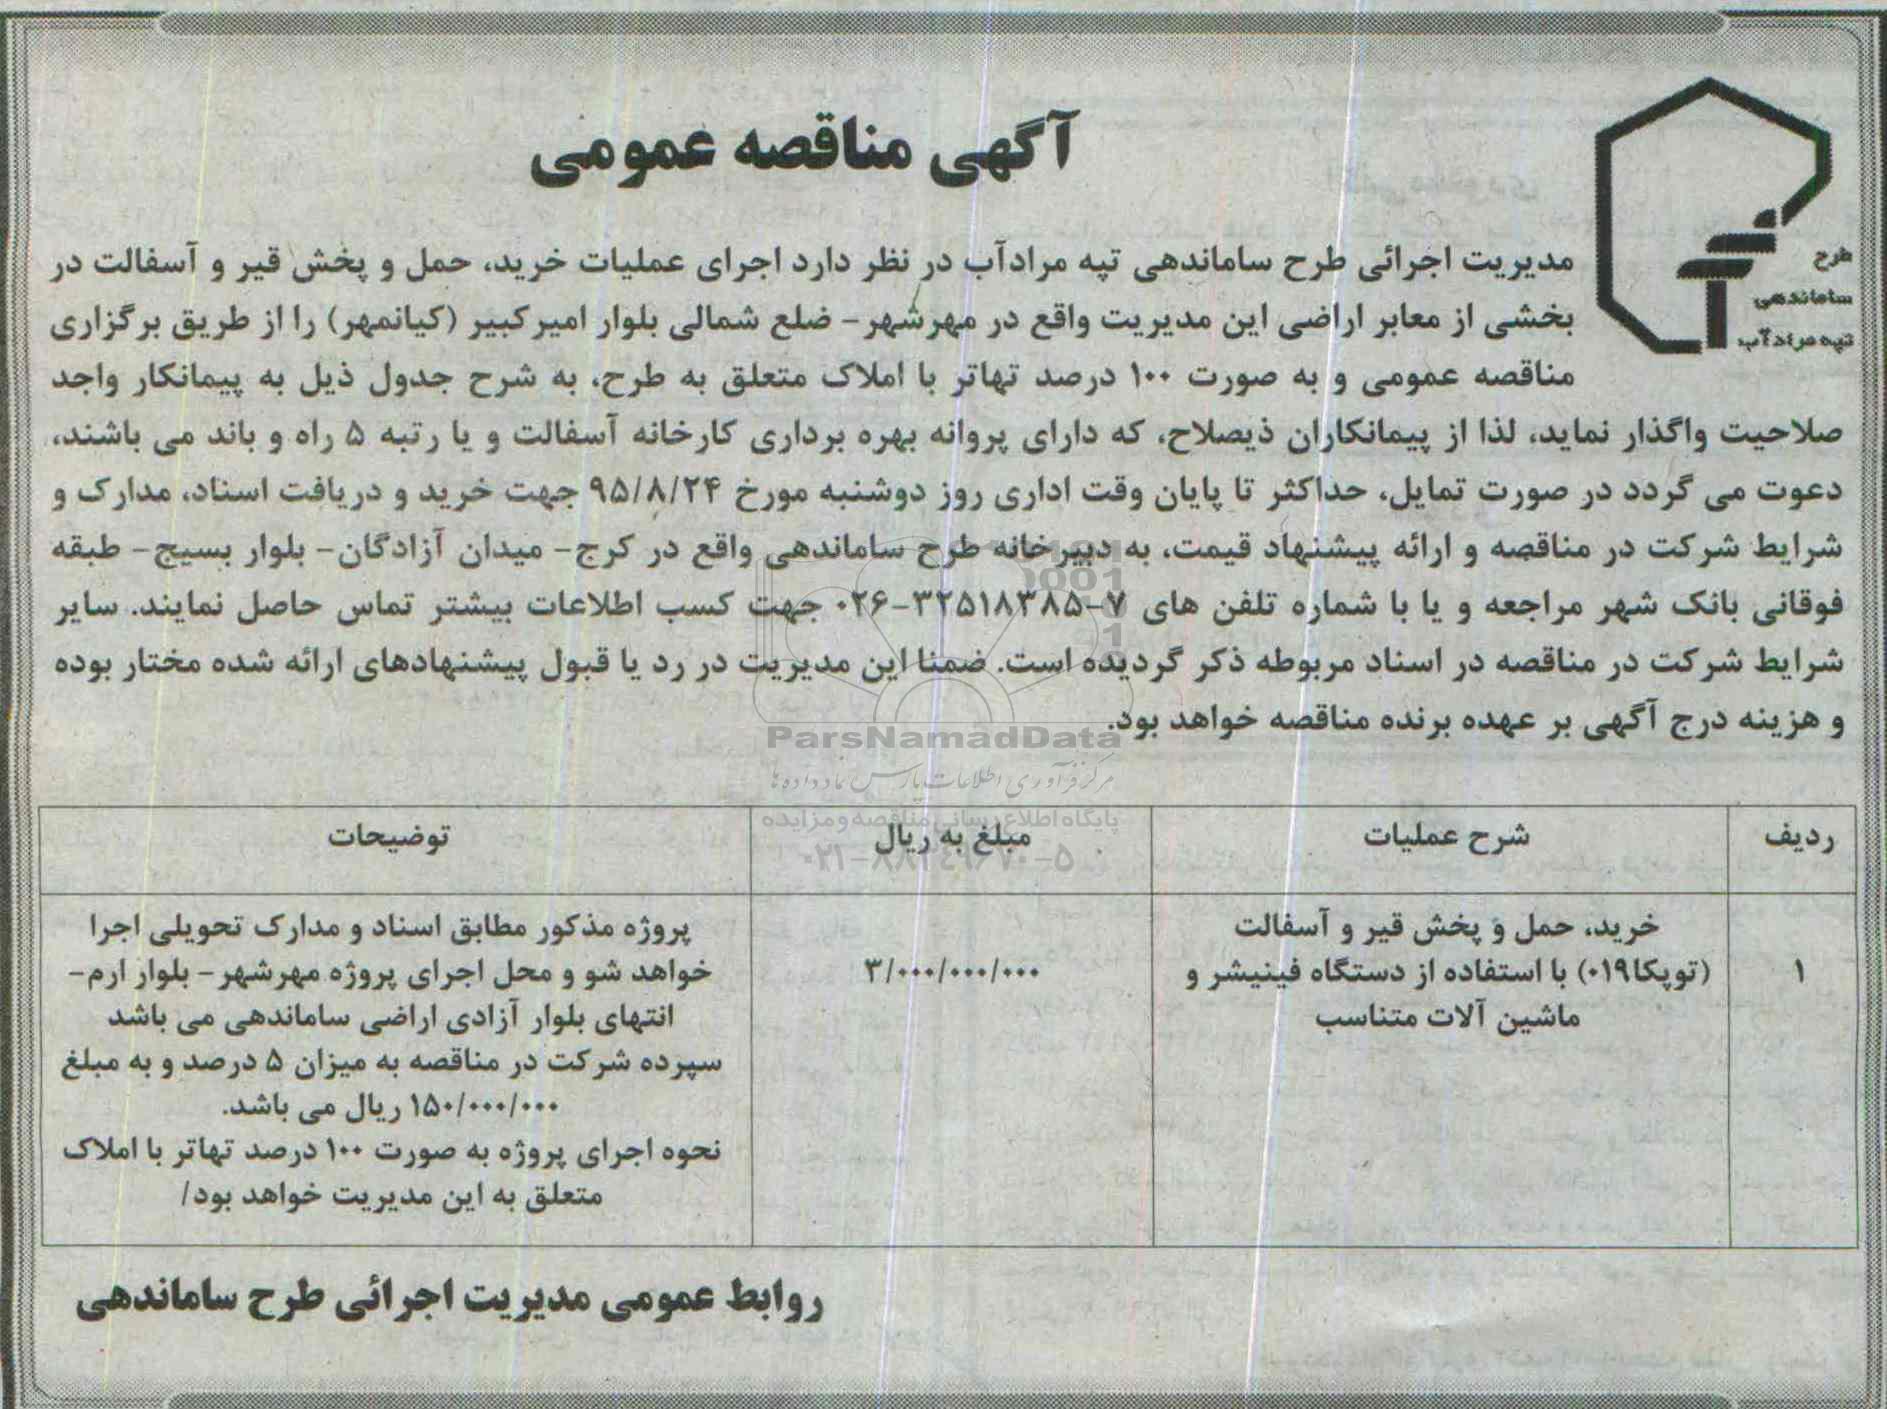 آگهی مناقصه عمومی
طرح
ساماندهی
تپه مرادآب
مدیریت اجرائی طرح ساماندهی تپه مرادآب در نظر دارد اجرای عملیات خرید، حمل و پخش قیر و آسفالت در
بخشی از معابر اراضی این مدیریت واقع در مهرشهر- ضلع شمالی بلوار امیرکبیر (کیانمهر) را از طریق برگزاری
مناقصه عمومی و به صورت ۱۰۰ درصد تهاتر با املاک متعلق به طرح، به شرح جدول ذیل به پیمانکار واجد
صلاحیت واگذار نماید، لذا از پیمانکاران ذیصلاح، که دارای پروانه بهره برداری کارخانه آسفالت و یا رتبه ۵ راه و باند می باشند،
دعوت می گردد در صورت تمایل، حداکثر تا پایان وقت اداری روز دوشنبه مورخ ۹۵/۸/۲۴ جهت خرید و دریافت اسناد، مدارک و
شرایط شرکت در مناقصه و ارائه پیشنهاد قیمت، به دبیرخانه طرح ساماندهی واقع در کرج- میدان آزادگان- بلوار بسیج- طبقه
فوقانی بانک شهر مراجعه و یا با شماره تلفن های ۷-۳۲۵۱۸۳۸۵-۰۲۶ جهت کسب اطلاعات بیشتر تماس حاصل نمایند. سایر
شرایط شرکت در مناقصه در اسناد مربوطه ذکر گردیده است. ضمنا این مدیریت در رد یا قبول پیشنهادهای ارائه شده مختار بوده
و هزینه درج آگهی بر عهده برنده مناقصه خواهد بود.
ParsNamadData
مرکز فرآوری اطلاعات پارس نماد داده ها
پایگاه اطلاع رسانی مناقصه و مزایده
۰۲۱-۸۸۳۴۹۶۷۰-۵
ردیف شرح عملیات مبلغ به ریال توضیحات
۱
خرید، حمل و پخش قیر و آسفالت
(توپکا۰۱۹) با استفاده از دستگاه فینیشر و
ماشین آلات متناسب
۳/۰۰۰/۰۰۰/۰۰۰
پروژه مذکور مطابق اسناد و مدارک تحویلی اجرا
خواهد شو و محل اجرای پروژه مهرشهر- بلوار ارم-
انتهای بلوار آزادی اراضی ساماندهی می باشد
سپرده شرکت در مناقصه به میزان ۵ درصد و به مبلغ
۱۵۰/۰۰۰/۰۰۰ ریال می باشد.
نحوه اجرای پروژه به صورت ۱۰۰ درصد تهاتر با املاک
متعلق به این مدیریت خواهد بود/
روابط عمومی مدیریت اجرائی طرح ساماندهی